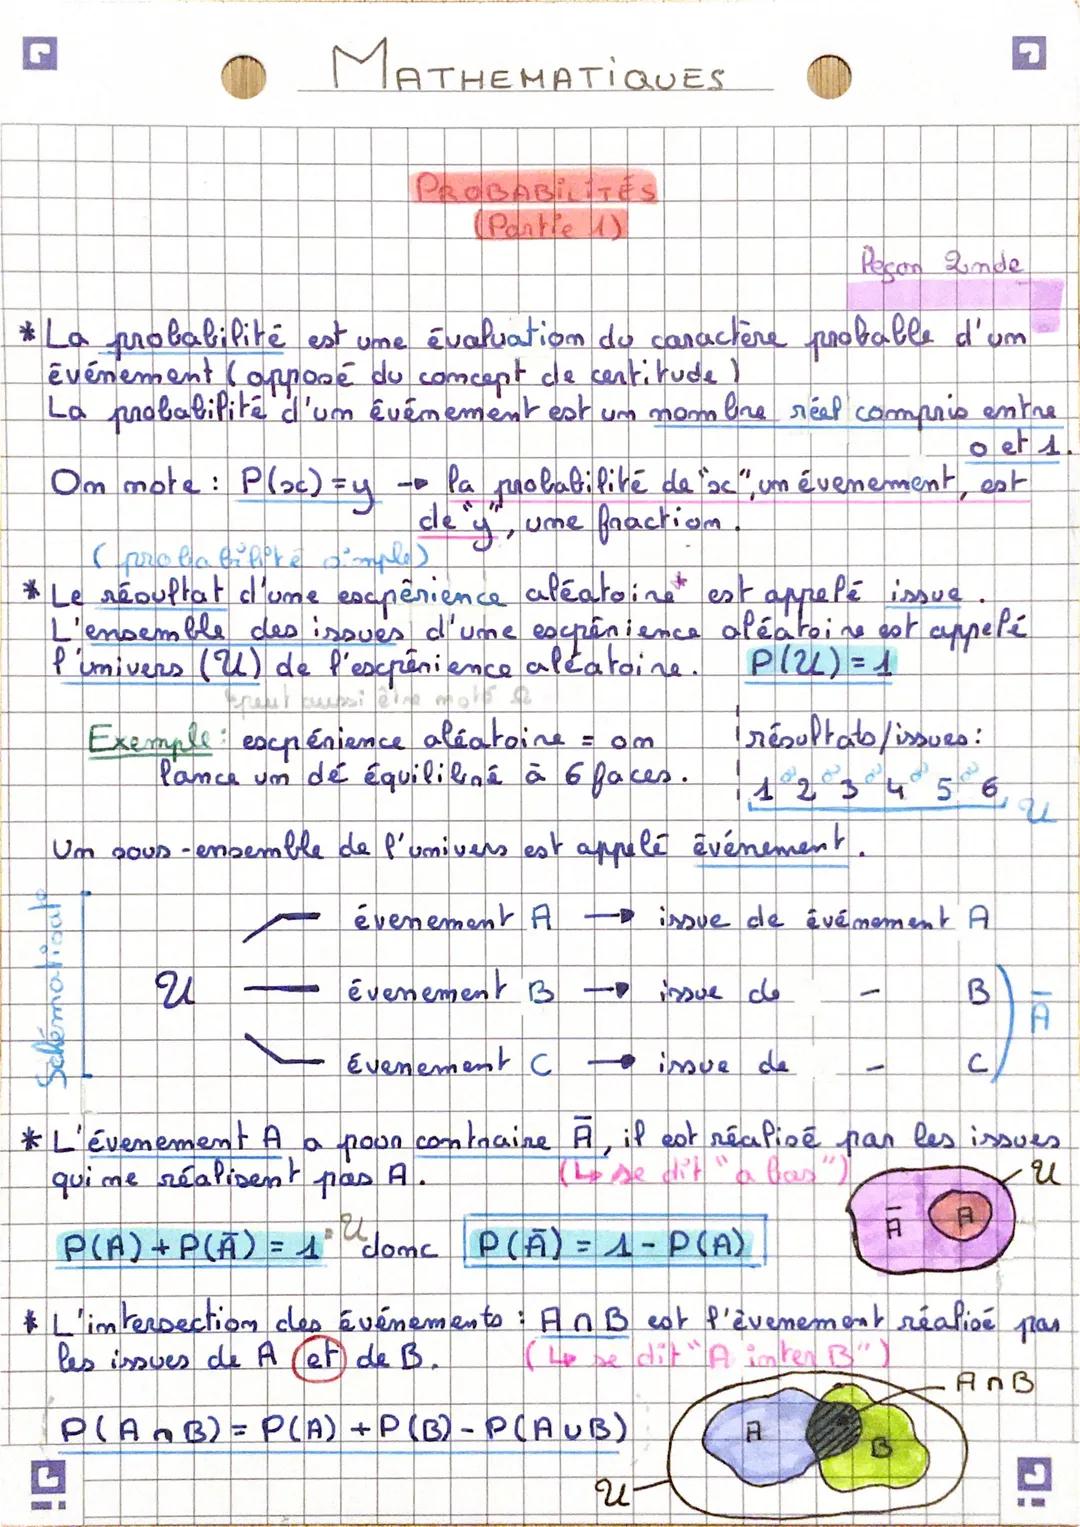 MATHEMATiQUES
PROBABiLiTÉS
(Partie 1)
Leçon 2nde
* La probabilité est une évaluation du caractère probable d'un
événement (opposé du concept de certitude)
La probabilité d'un événement est un nombre réel compris entre
0 et 1.
On note : P(x) = y → la probabilité de "x", un évenement, est
de "y", une fraction.
(probabilité simple)
* Le résultat d'une expérience aléatoire* est appelé issue.
L'ensemble des issues d'une expérience aléatoire est appelé
l'univers (U) de l'expérience aléatoire. P(U) = 1
peut aussi être noté Ω
Exemple : expérience aléatoire = on
lance un dé équilibré à 6 faces.
résultats/issues :
1 2 3 4 5 6
U
Un sous-ensemble de l'univers est appelé événement.
Schématisate
évenement A → issue de événement A
U évenement B → issue de - B
Ā
évenement C → issue de - C
* L'évenement A a pour contraire Ā, il est réalisé par les issues
qui ne réalisent pas A. (↳ se dit "a bar")
U
Ā A
P(A) + P(Ā) = 1 = U donc P(Ā) = 1 - P(A)
* L'intersection des événements : A ∩ B est l'èvenement réalisé par
les issues de A et de B. (↳ se dit "A inter B")
A ∩ B
P(A ∩ B) = P(A) + P(B) - P(A ∪ B)
A B
U